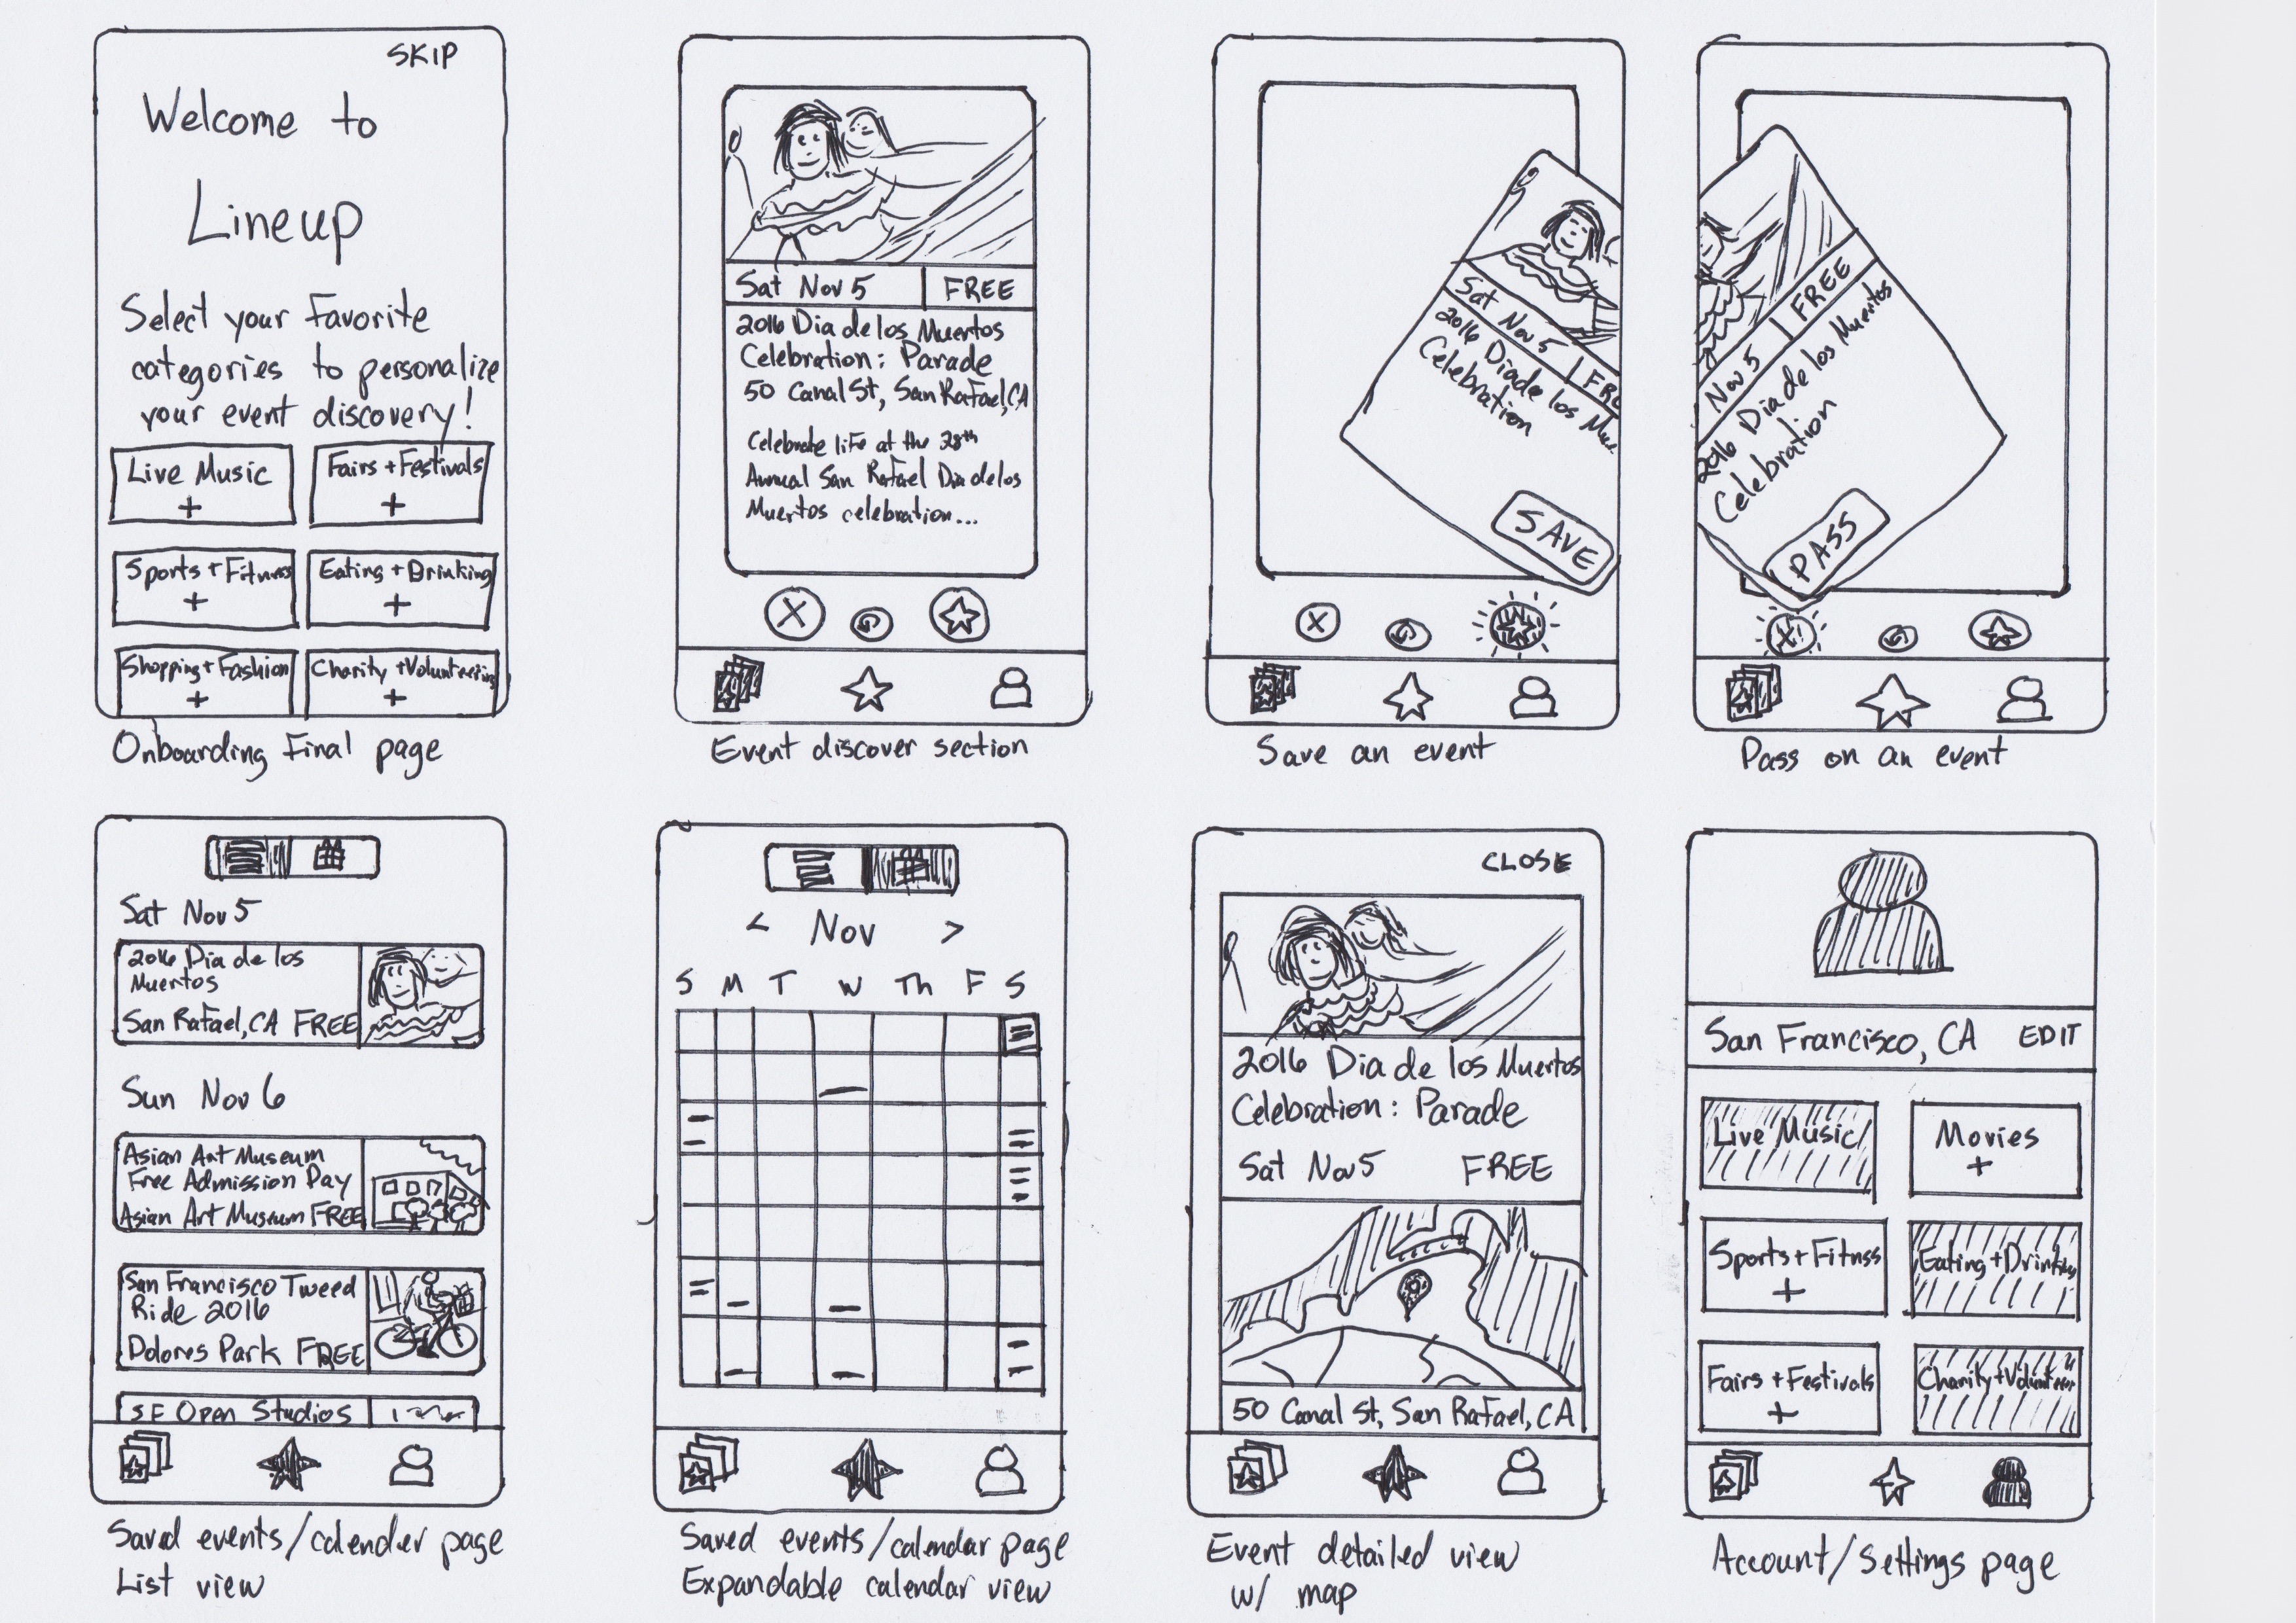 SKIP
Welcome to
Lineup
Select your Favorite
categories to personalize
your event discovery!
Live Music
+
Fairs + Festivals
+
Sports + Fitness
+
Eating + Drinking
+
Shopping + Fashion
+
Charity + Volunteering
+
Onboarding Final page
Sat Nov 5
FREE
2016 Dia de los Muertos
Celebration: Parade
50 Canal St, San Rafael, CA
Celebrate life at the 28th
Annual San Rafael Dia de los
Muertos celebration...
X
Event discover section
Sat Nov 5
FRE
2016 Dia de los Mue
Celebration
SAVE
X
Save an event
Nov 5
FREE
2016 Dia de los Muertos
Celebration
PASS
X
Pass on an event
Sat Nov 5
2016 Dia de los
Muertos
San Rafael, CA FREE
Sun Nov 6
Asian Art Museum
Free Admission Day
Asian Art Museum FREE
San Francisco Tweed
Ride 2016
Dolores Park FREE
SF Open Studios
Saved events/calender page
List view
< Nov >
S M T W Th F S
Saved events/calendar page
Expandable calendar view
CLOSE
2016 Dia de los Muertos
Celebration: Parade
Sat Nov 5 FREE
50 Canal St, San Rafael, CA
Event detailed view
w/ map
San Francisco, CA EDIT
Live Music
Movies
+
Sports + Fitnss
+
Eating + Drinking
Fairs + Festivals
+
Charity + Volunteer
Account/Settings page